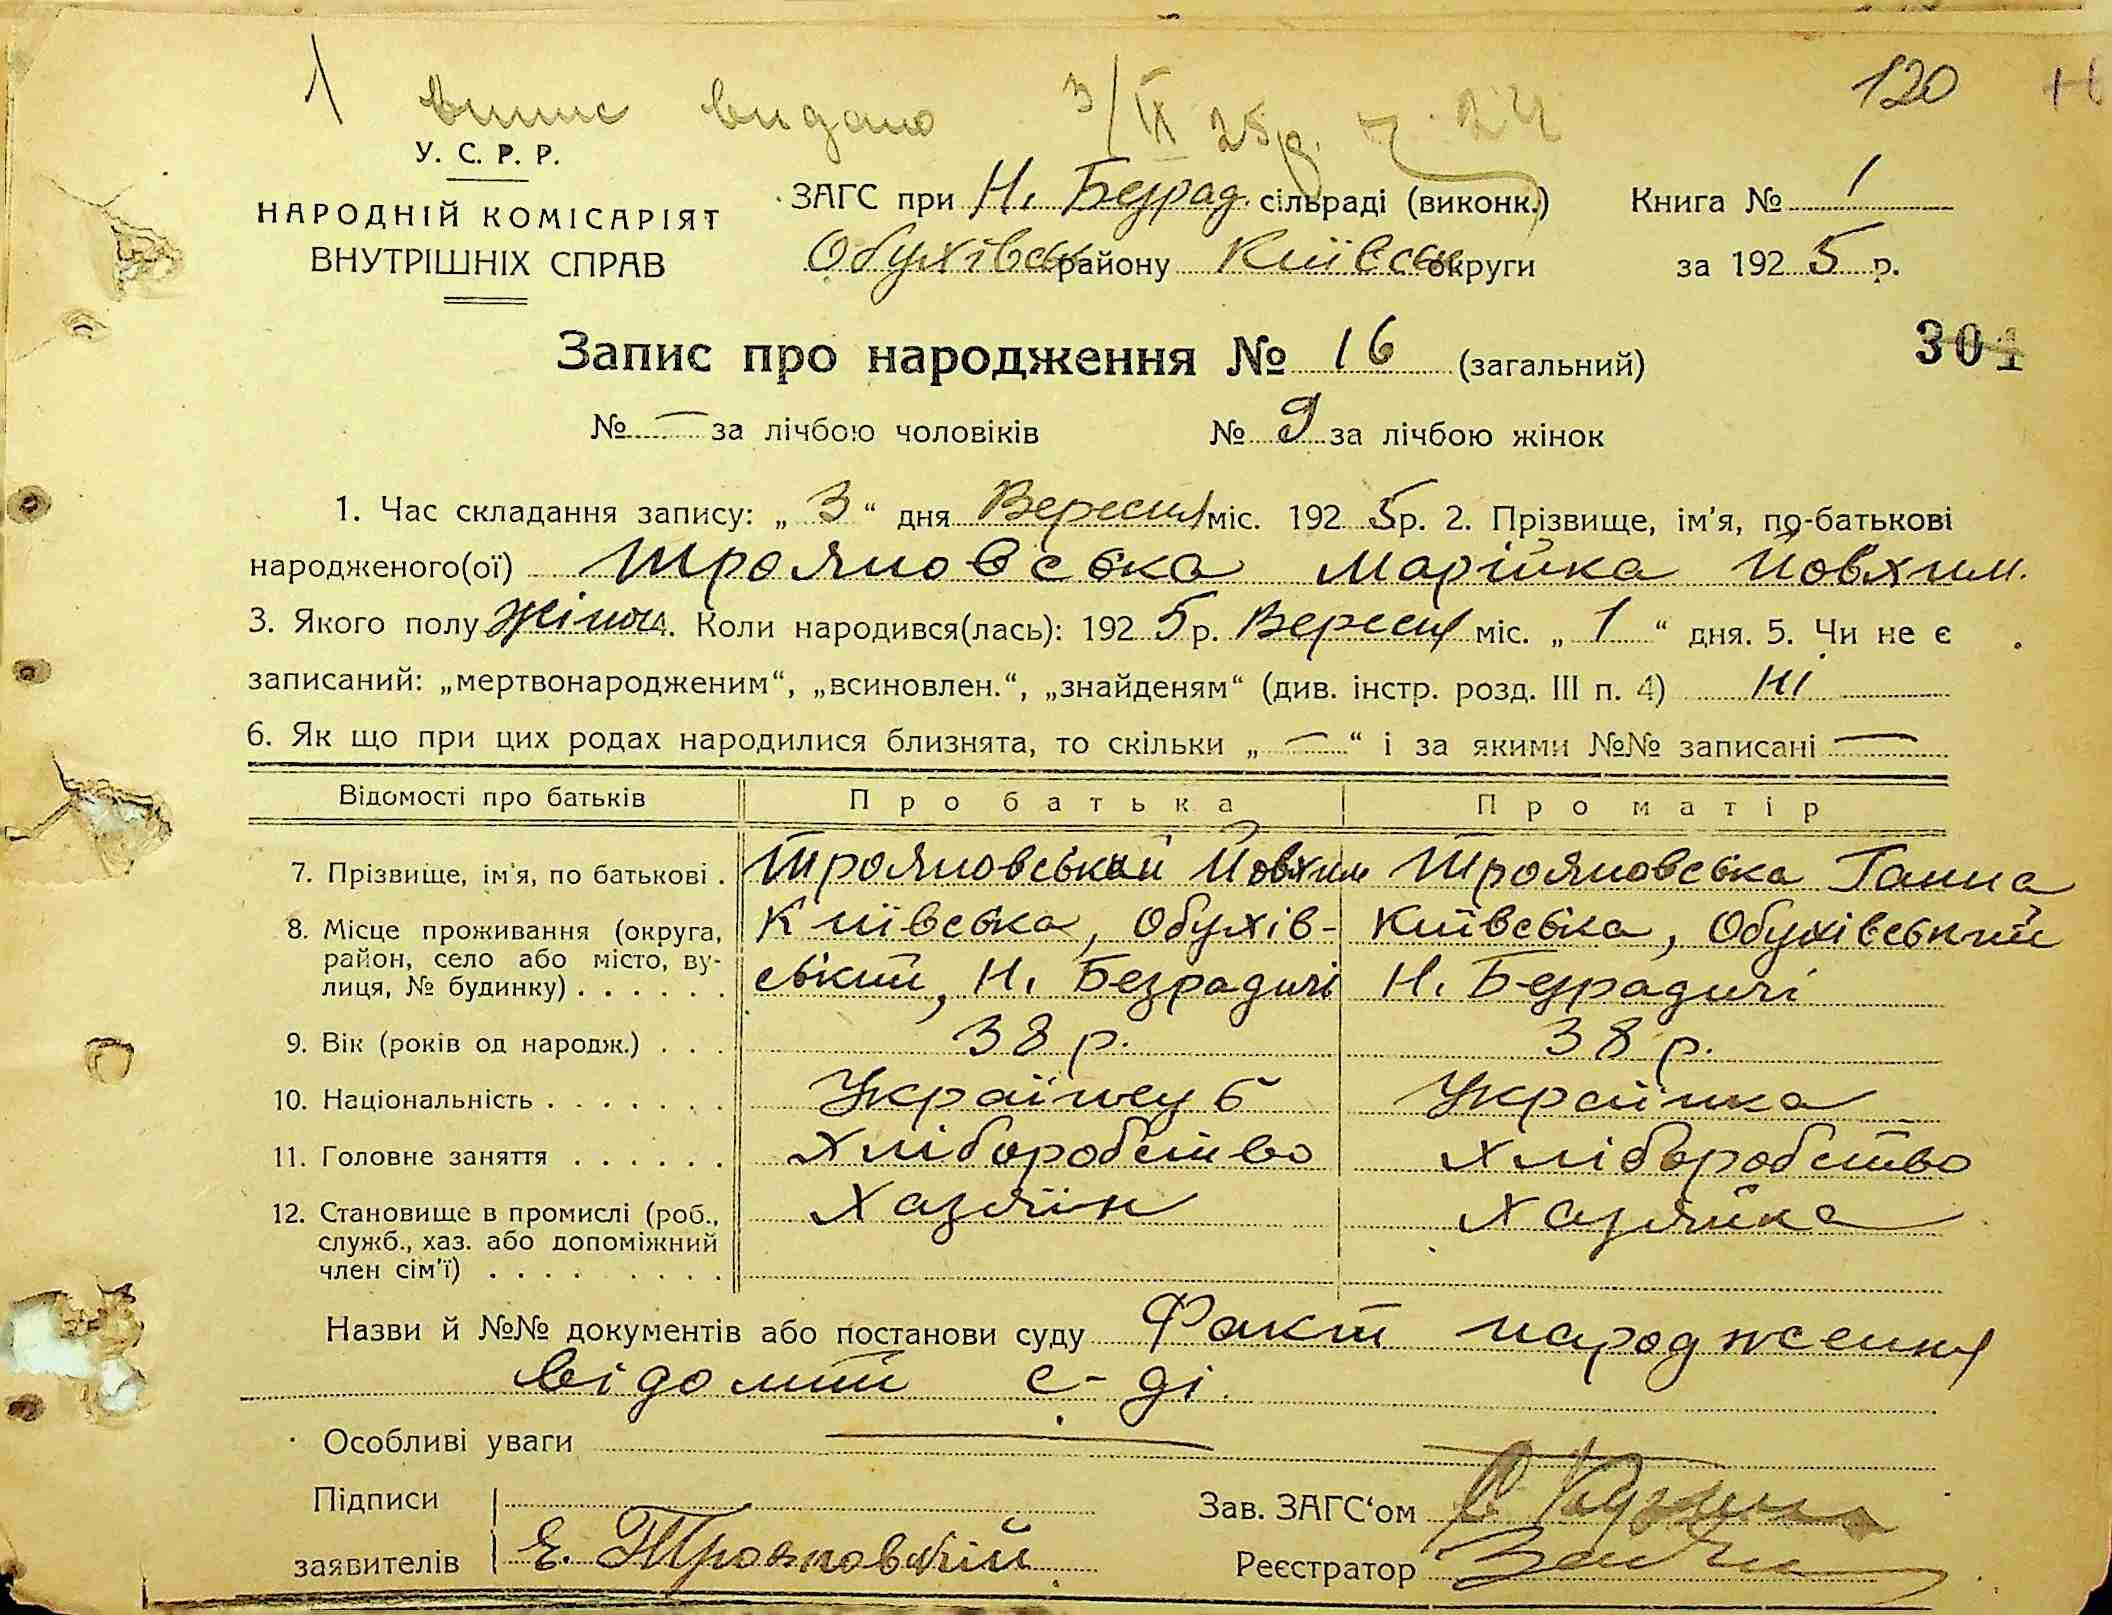 1 випис видано 3/IX 25р. ч. 24
120
У. С. Р. Р.
НАРОДНІЙ КОМІСАРІЯТ
ВНУТРІШНІХ СПРАВ
ЗАГС при Н. Безрад. сільраді (виконк.)
Обухівськ району Київськ округи
Книга № 1
за 1925 р.
Запис про народження № 16 (загальний)
301
№ — за лічбою чоловіків № 9 за лічбою жінок
1. Час складання запису: „ 3 “ дня Вересня міс. 1925р. 2. Прізвище, ім'я, по-батькові
народженого(ої) Трояновська Марійка Йовхим.
3. Якого полу Жіноч. Коли народився(лась): 1925р. Вересня міс. „ 1 “ дня. 5. Чи не є
записаний: „мертвонародженим“, „всиновлен.“, „знайденям“ (див. інстр. розд. III п. 4) ні
6. Як що при цих родах народилися близнята, то скільки „ — “ і за якими №№ записані —
Відомості про батьків Про батька Про матір
7. Прізвище, ім'я, по батькові . Трояновський Йовхим Трояновська Ганна
8. Місце проживання (округа, Київська, Обухів- Київська, Обухівський
район, село або місто, ву-
лиця, № будинку) . . . . . . ський, Н. Безрадичі Н. Безрадичі
9. Вік (років од народж.) . . . 38 р. 38 р.
10. Національність . . . . . . . Українець Українка
11. Головне заняття . . . . . . Хліборобство Хліборобство
12. Становище в промислі (роб., Хазяїн Хазяйка
служб., хаз. або допоміжний
член сім'ї) . . . . . . . .
Назви й №№ документів або постанови суду Факт народження
відомий с-ді.
Особливі уваги —
Підписи
заявителів Е. Трояновскій
Зав. ЗАГС'ом
Реєстратор